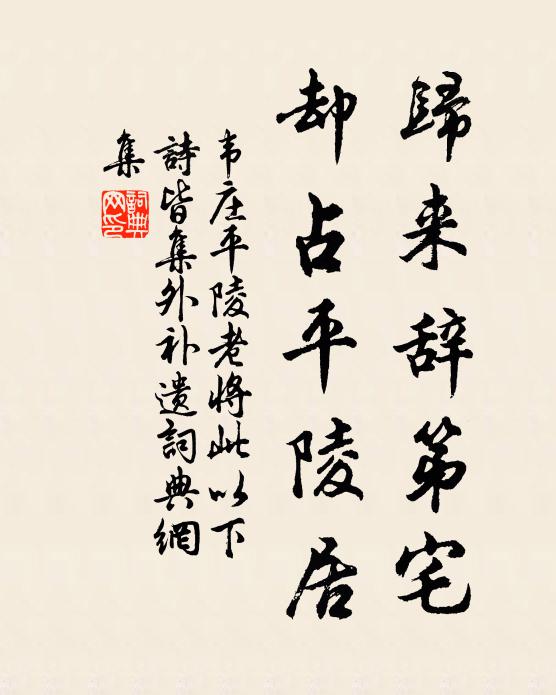 歸来辞第宅
却占平陵居
韦庄平陵老將此以下
詩皆集外补遗詞典網
集
詞典
网印